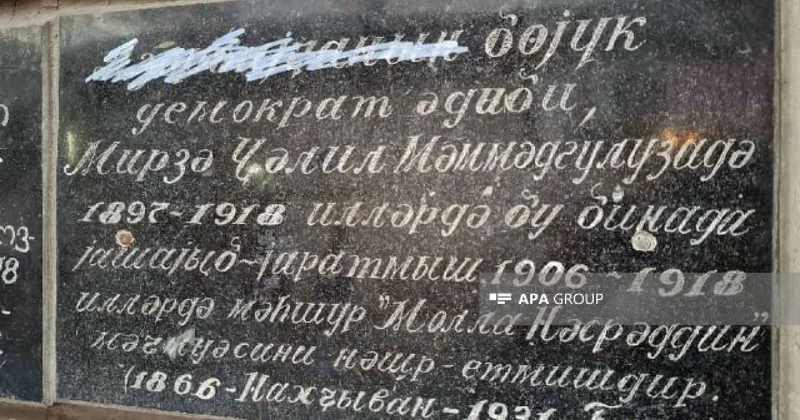 бөјүк
демократ әдиби,
Мирзә Ҹәлил Мәммәдгулузадә
1897-1918 илләрдә бу бинада
јашајыб-јаратмыш 1906-1918
илләрдә мәһшур "Молла Нәсрәддин"
мәҹмуәсини нәшр-етмишдир.
(1866-Нахчыван-1931-
APA GROUP